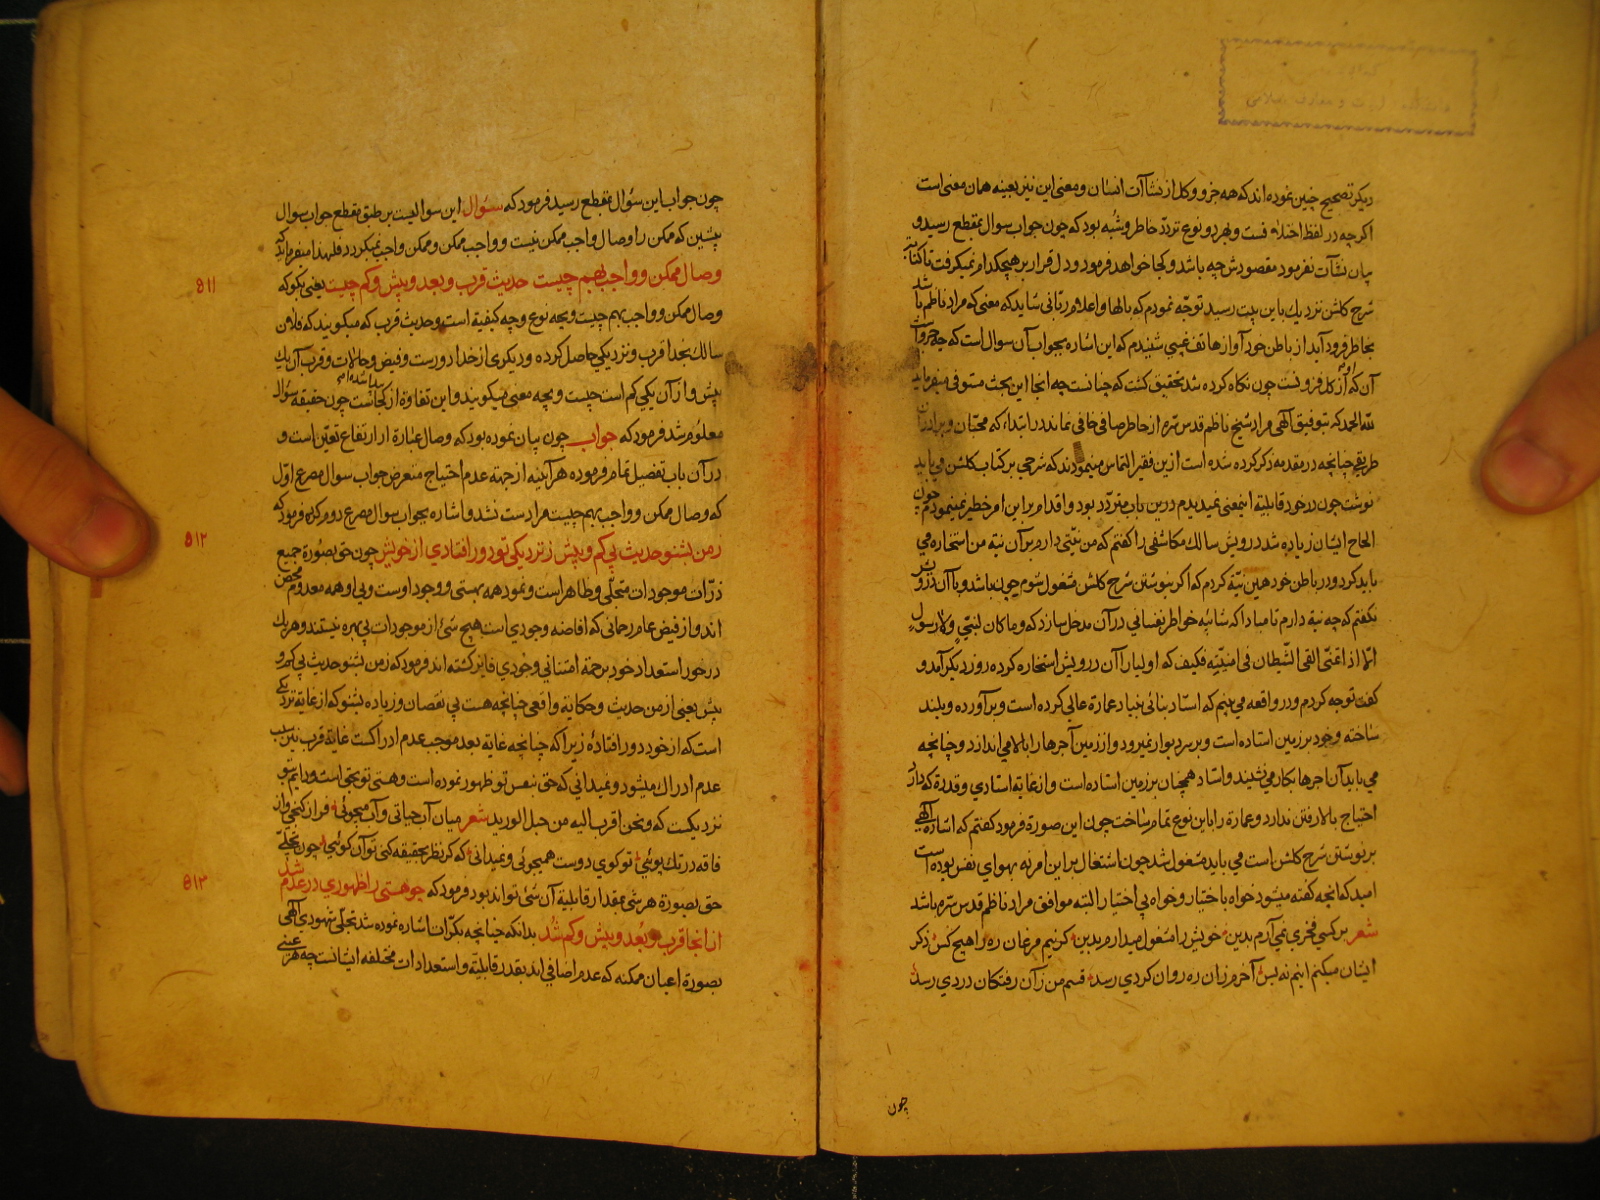 دیكر تصحیح چنین نموده اند كه همه جزو و كل از نشاآت انسان و معنی این نیز بعینه همان معنی است
اكرچه در لفظ اختلاف است و بهر دو نوع تردد خاطر و شبه بود كه چون جواب سوال بمقطع رسید و
بیان نشآت نفرمود مقصودش چه باشد و كجا خواهد فرمود و دل قرار بر هیچكدام نمیكرفت تا كتابة
شرح كلشن نزدیك باین بیت رسید توجه نمودم كه بالهام و اعلام ربانی شاید كه معنی كه مراد ناظم باشد
بخاطر فرود آید از باطن خود آواز هاتف غیبی شنیدم كه این اشاره بجواب آن سوال است كه چه جزو است
آن كه او از كل فزونست چون نكاه كرده شد بتحقیق كشت كه چنانست چه آنجا این بحث مستوفی میفرماید
لله الحمد كه بتوفیق الهی مراد شیخ ناظم قدس سره از خاطر صافی خافی نماند در ابتداء كه محبان و برادران
طریقی چنانچه در مقدمه ذكر كرده شده است ازین فقیر التماس مینمودند كه شرحی بر كتاب كلشن می باید
نوشت چون در خود قابلیة اینمعنی نمیدیدم درین باب متردد بود و اقدام براین امر خطیر نمینمودم چون
الحاح ایشان زیاده شد درویش سالك مكاشفی را كفتم كه من نیتی دارم بر آن نیة من استخاره می
باید كرد و در باطن خود همین نیة كردم كه اكر بنوشتن شرح كلشن مشغول شوم چون باشد و با آن درویش
نكفتم كه چه نیة دارم تا مبادا كه شائبه خواطر نفسانی در آن مدخل سازد كه و ما كان لنبی ولا رسول
الا اذا تمنی القی الشیطان فی امنیته فكیف كه اولیا را آن درویش استخاره كرده روز دیكر آمد و
كفت توجه كردم و در واقعه می بینم كه استاد بنائی بنیاد عمارة عالی كرده است و برآورده و بلند
ساخته و خود بر زمین استاده است و بر سر دیوار نمیرود و از زمین آجرها را بالا می اندازد و چنانچه
می باید آن اجرها بكار می نشیند و استاد همچنان بر زمین استاده است و از غایة استادی و قدرة كه دارد
احتیاج ببالا رفتن ندارد و عمارة را باین نوع تمام ساخت چون این صورة فرمود كفتم كه اشاره الهی
بر نوشتن شرح كلشن است می باید مشغول شد چون اشتغال بر این امر نه بهوای نفس بوده است
امید كه آنچه كفته میشود خواه با ختیار و خواه بی اختیار البته موافق مراد ناظم قدس سره باشد
شعر بر كسی فخری نمی آرم بدین خویش را مشغول میدارم بدین كر نیم مرغان ره را هیچ كس ذكر
ایشان میكنم اینم نه بس آخرم زان ره روان كردی رسد قسم من زان رفتكان دردی رسد
چون
چون جواب این سؤال بمقطع رسید فرمود كه سؤال این سوالیست بر طبق مقطع جواب سوال
پیشین كه ممكن را وصال واجب ممكن نیست و واجب ممكن و ممكن واجب نمیكردد فلهذا میفرماید كه
وصال ممكن و واجب بهم چیست حدیث قرب و بعد و بیش و كم چیست یعنی بكو كه
۵۱۱
وصال ممكن و واجب بهم چیست و بچه نوع و چه كیفیة است و حدیث قرب كه میكویند كه فلان
سالك بخدا قرب و نزدیكی حاصل كرده و دیكری از خدا دورست و فیض و حالات و قرب آن یك
بیش و از آن یكی كم است چیست و بچه معنی میكویند و این تفاوة از كجاست چون حقیقه سؤال
معلوم شد فرمود كه جواب چون بیان نموده بود كه وصال عبارة از ارتفاع تعین است و
در آن باب تفصیل تمام فرموده هر آینه از جهة عدم احتیاج متعرض جواب سوال مصرع اول
كه وصال ممكن و واجب بهم چیست مراد ست نشد و اشاره بجواب سوال مصرع دوم كرده فرمود كه
ز من بشنو حدیث بی كم و بیش ز نزدیكی تو دور افتادی از خویش چون حق بصورة جمیع
۵۱۲
ذرات موجودات متجلی و ظاهر است و نمود همه بهستی و وجود اوست و بی او همه معدوم محض
اند و از فیض عام رحمانی كه افاضه وجودی است هیچ شئ از موجودات بی بهره نیستند و هر یك
در خور استعداد خود برحمة امتنانی وجودی فایز كشته اند فرمود كه ز من بشنو حدیث بی كم و
بیش یعنی از من حدیث و حكایة واقعی چنانچه هست بی نقصان و زیاده بشنو كه از غایة نزدیكی
است كه از خود دور افتادۀ زیرا كه چنانچه غایة بعد موجب عدم ادراكست غایة قرب نیز سبب
عدم ادراك میشود و نمیدانی كه حق بنفس تو ظهور نموده است و هستی تو بحق است و دایم بتو
نزدیكست كه و نحن اقرب الیه من حبل الورید شعر میان آب حیاتی و آب میجوئی فراز كنجی و از
فاقه در تك پوئی تو كوی دوست همیجوئی و نمیدانی كه كر نظر بحقیقه كنی تو آن كوئی چون تجلی
حق بصورة هر شئ بمقدار قابلیة آن شئ تواند بود فرمود كه چو هستی را ظهوری در عدم شد
۵۱۳
از آنجا قرب و بعد و بیش و كم شد بدانكه چنانچه بكرات اشاره نموده شد تجلی شهودی الهی
بصورة اعیان ممكنه كه عدم اضافی اند بقدر قابلیة و استعدادات مختلفه ایشانست چه هر عینی